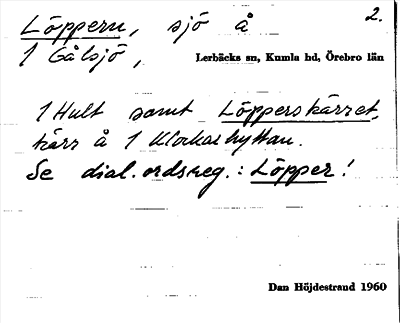 Löppern, sjö å 2.
1 Gålsjö, Lerbäcks sn, Kumla hd, Örebro län
1 Hult samt Löpperskärret,
kärr å 1 Klockarhyttan.
Se dial.ordsreg.: Löpper!
Dan Höjdestrand 1960